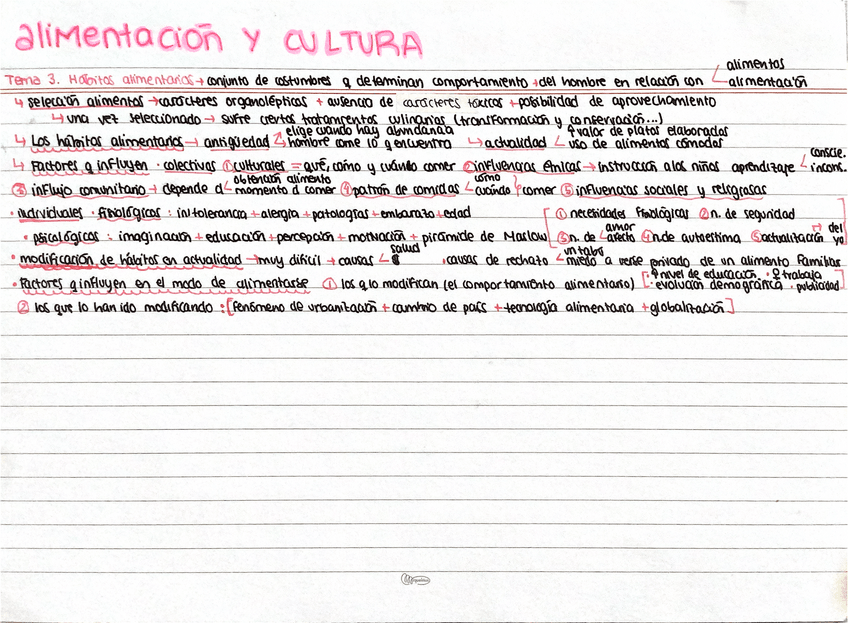 alimentación y CULTURA
alimentos
Tema 3. Hábitos alimentarios → conjunto de costumbres q determinan comportamiento → del hombre en relación con alimentación
↳ selección alimentos → carácteres organolépticos + ausencia de carácteres tóxicos + posibilidad de aprovechamiento
↳ una vez seleccionado → sufre ciertos tratamientos culinarios (transformación y conservación...)
elige cuando hay abundancia ↑ valor de platos elaborados
↳ Los hábitos alimentarios → antigüedad hombre come lo q encuentra ↳ actualidad uso de alimentos cómodos
conscie.
↳ Factores q influyen · colectivas ① culturales = qué, cómo y cuándo comer ② influencias étnicas → instrucción a los niños aprendizaje incons.
obtención alimento como
③ influjo comunitario → depende d momento d comer ④ patrón de comidas cuándo comer ⑤ influencias sociales y religiosas
· individuales · fisiológicos : intolerancia + alergia + patologías + embarazo + edad [① necesidades fisiológicas ② n. de seguridad]
amor del
· psicológicos : imaginación + educación + percepción + motivación + pirámide de Maslow ③ n. de afecto ④ n de autoestima ⑤ actualización yo
salud un tabú
· modificación de hábitos en actualidad → muy difícil → causas · causas de rechazo miedo a verse privado de un alimento familias
· Factores q influyen en el modo de alimentarse ① los q lo modifican (el comportamiento alimentario) [· ↑ nivel de educación · ♀ trabaja]
· evolución demográfica · publicidad
② los que lo han ido modificando : [fenómeno de urbanización + cambio de país + tecnología alimentaria + globalización]